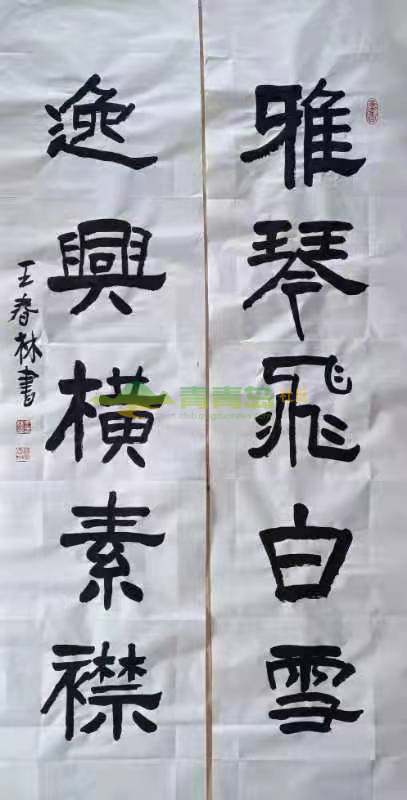 雅琴飛白雪
逸興橫素襟
王春林書
青青岛社区